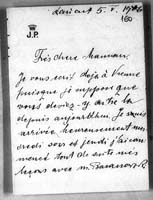 J.P.
160
Très chère Maman,
Je vous écris déjà à Vienne
puisque je suppose que
vous deviez y être
depuis aujourd'hui. Je suis
arrivée heureusement
credi soir et jeudi j'ai com
mencé tout de suite mes
leçons avec M.